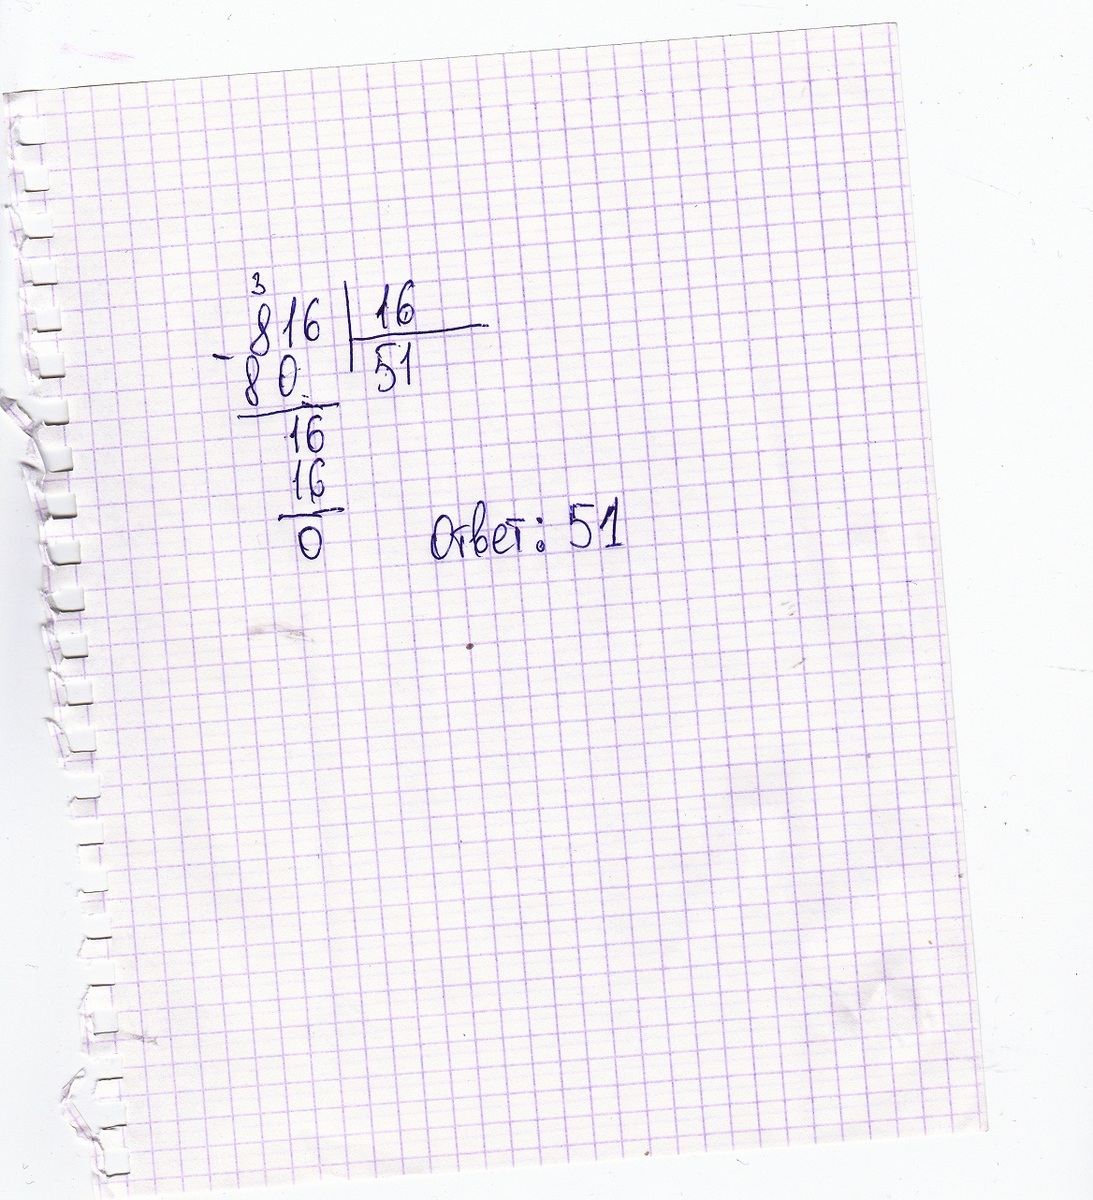 3
816 16
- 80 51
16
16
0
Ответ: 51